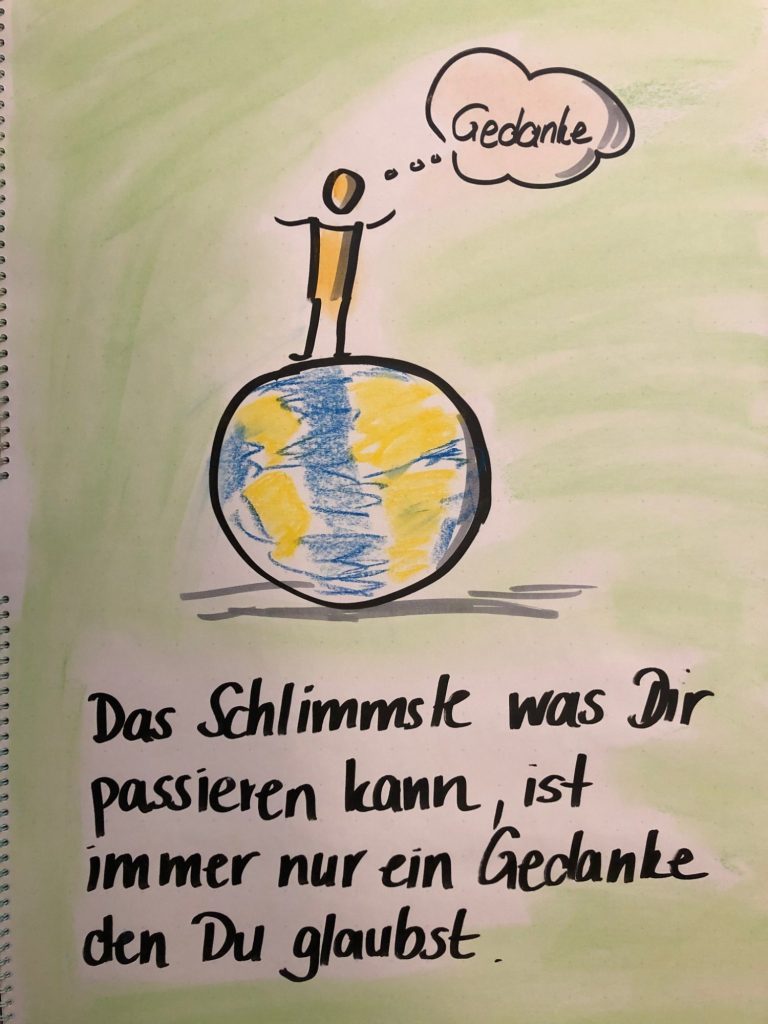 Gedanke
Das Schlimmste was Dir
passieren kann, ist
immer nur ein Gedanke
den Du glaubst.